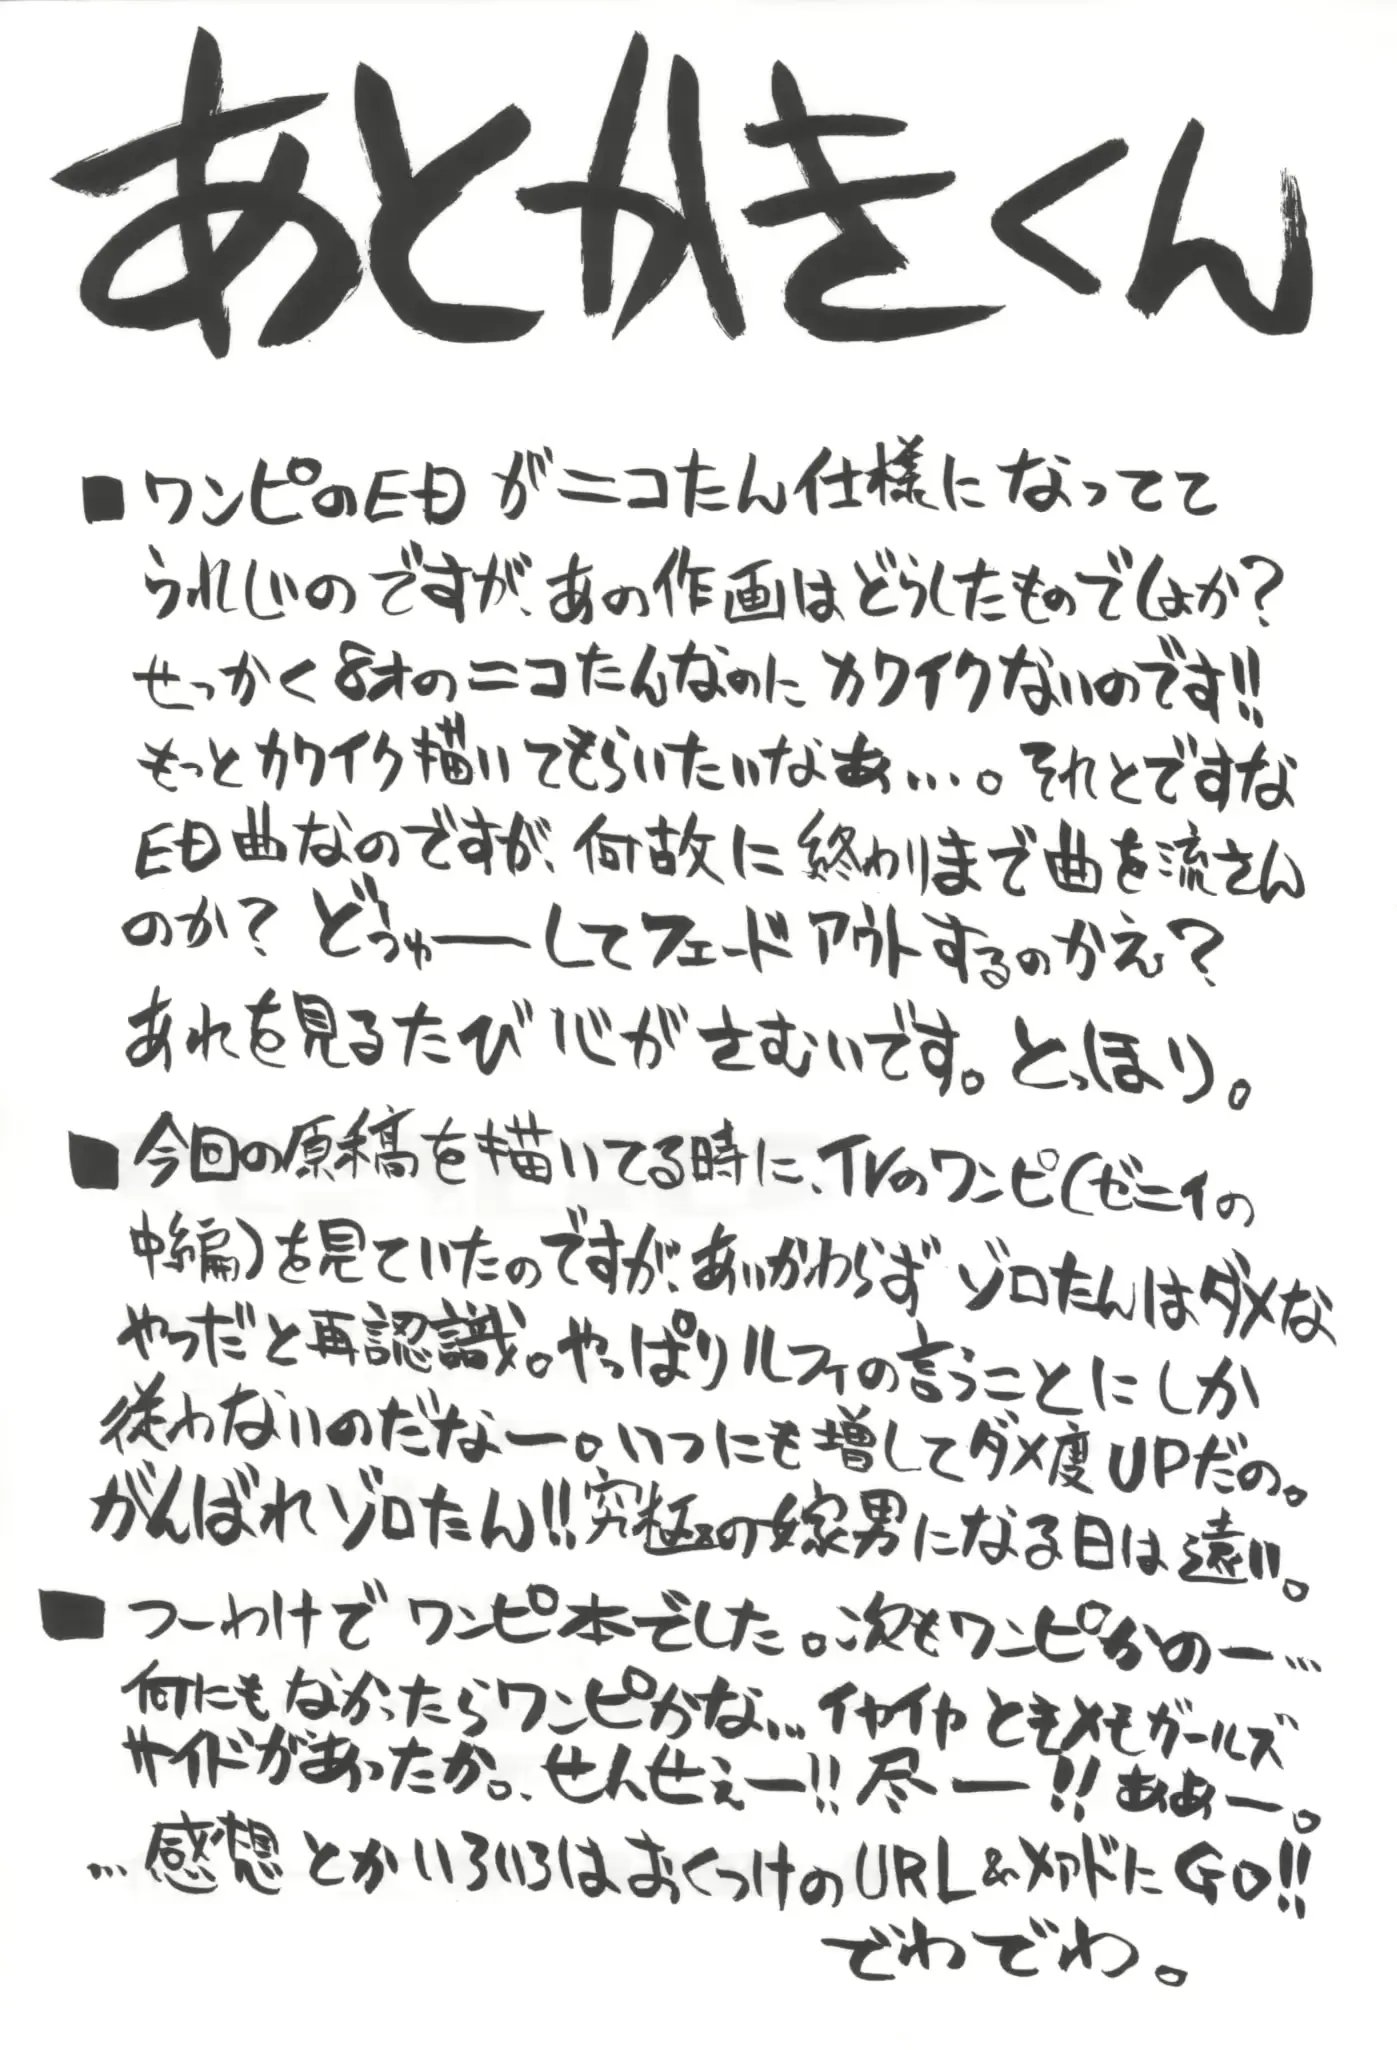 あとかきくん
■ワンピのEDがニコたん仕様になってて
うれしいのですが、あの作画はどうしたものでしょか?
せっかく8才のニコたんなのにカワイクないのです!!
もっとカワイク描いてもらいたいなあ…。それとですな
ED曲なのですが、何故に終わりまで曲を流さん
のか? どぅゅーしてフェードアウトするのかえ?
あれを見るたび心がさむいです。とっほり。
■今回の原稿を描いてる時に、TVのワンピ(ゼニィの
中編)を見ていたのですが、あいかわらずゾロたんはダメな
やつだと再認識。やっぱりルフィの言うことにしか
従わないのだなー。いつにも増してダメ度UPだの。
がんばれゾロたん!!究極の嫁男になる日は遠い。
■つーわけでワンピ本でした。次もワンピかのー…
何にもなかったらワンピかな… イヤイヤときメモガールズ
サイドがあったか。、せんせぇー!!尽ー!!ああー。
…感想とかいろいろはおくつけのURL&メアドにGO!!
でわでわ。